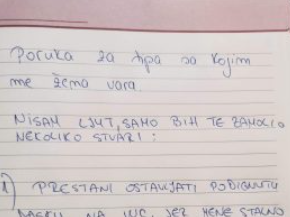 Poruka za tipa sa kojim
me žena vara.
NISAM LJUT, SAMO BIH TE ZAMOLIO
NEKOLIKO STVARI:
1) PRESTANI OSTAVLJATI PODIGNUTU
DASKU NA WC, JER MENE STALNO